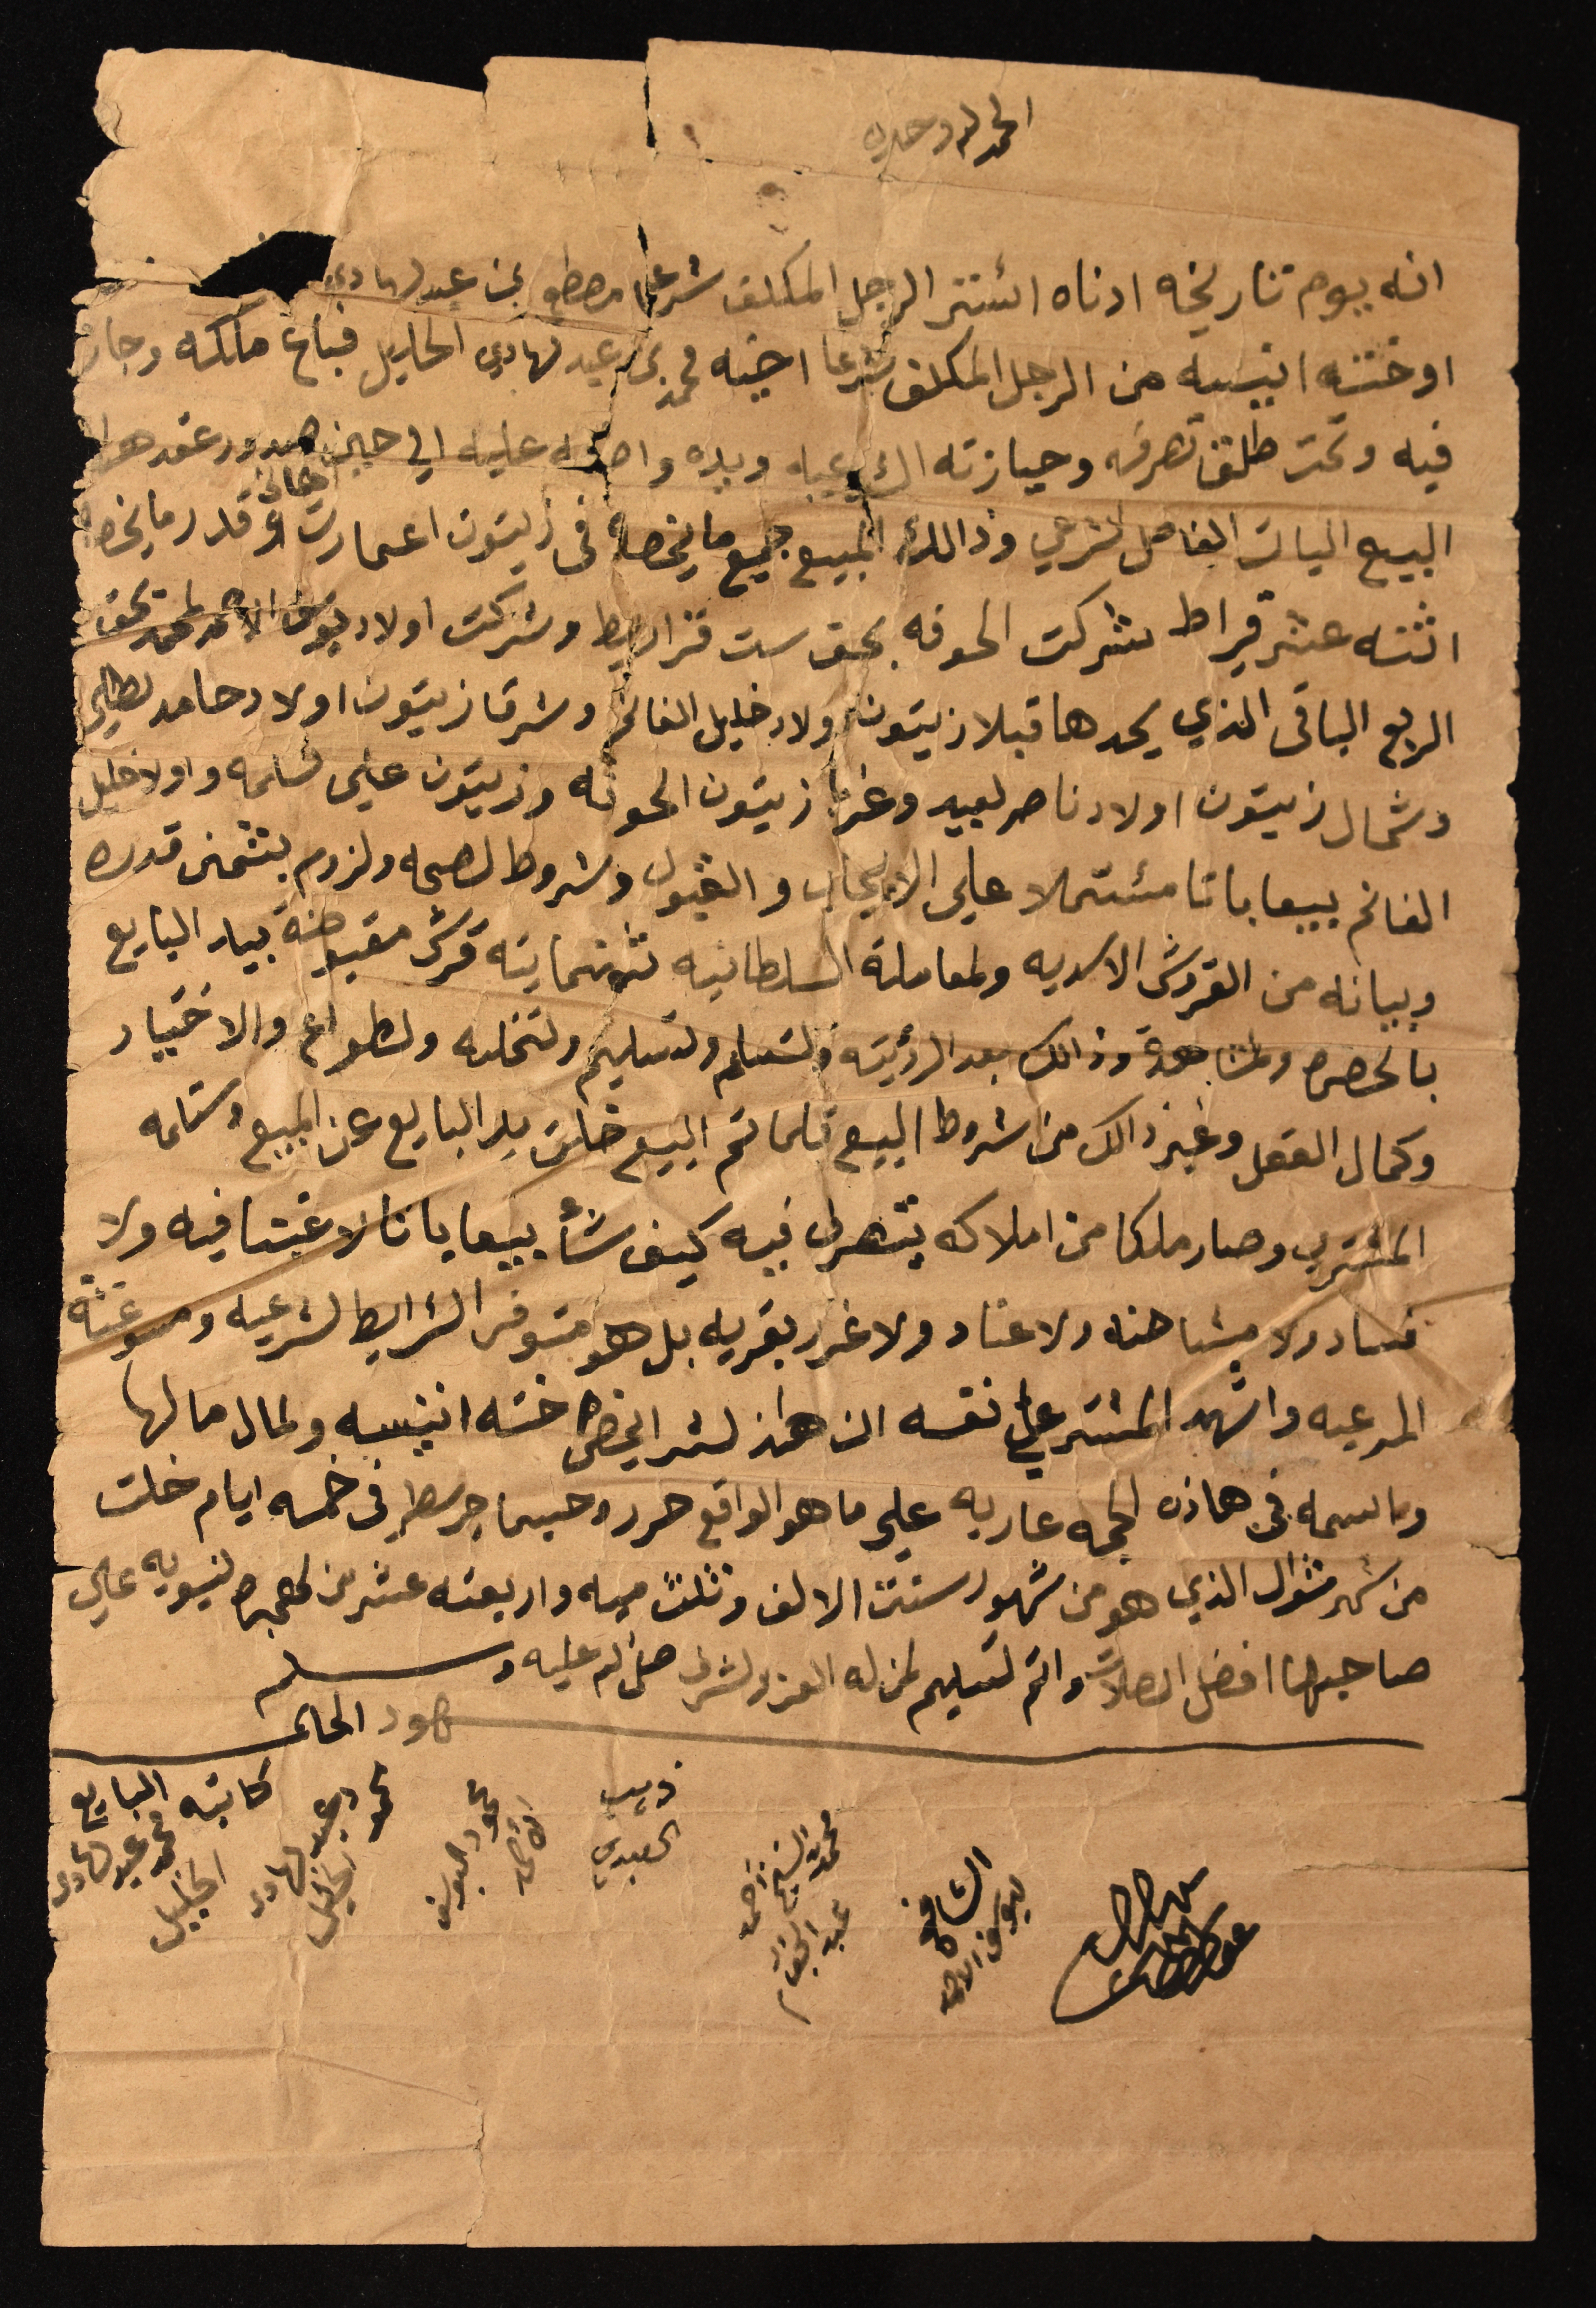 الحمد لله وحده
انه يوم تتاريخه ادناه اشتر الرجل المكلف شرعا مصطفى بن عبد لهادي
اوختته انيسه من الرجل المكلف شرعا اخيه محمد بن عبد لهادي الخليل فباع مالكه وجار
فيه وتحت طلق تصرفه وحيازته الشرعيه ويده واضعه عليه الي حين صدور عقد هذا
البيع البات الفاصل لشرعي وذالك المبيع جميع ما يخصه في زيتون اعمارت قدر ما يخصه
اثنته عشر قيراط بشركت الحوفه بحق ست قراريط وشركت اولاد يوسف الاحمد لمحمد بحق
الربع الباقي الذي يحدها قبلا زيتون ولاد خليل الغانم وشرقا زيتون اولاد حامد
وشمال زيتون اولاد ناصر لعبيد وغربا زيتون الحوفه وزيتون علي سالمه واولاد خليل
الغانم بيعا باتا مشتملا علي الايجاب والقبول وشروط لصحه ولزوم بتثمن قدره
وبيانه من القروش الاسديه ولمعاملة السلطانيه ثثمنماية قرش مقبوضة بيد البايع
بالحضره ولمشاهدة وذالك بعد الرؤيته ولتسلم ولتسليم ولتخليه ولطواع والاختيار
وكمال العقل وغير ذالك من شروط البيع فلما تم البيع خلت يد البايع عن المبيع وستلمه
المشتري وصار ملكا من املاكه يتصرف فيه كيف شأ بيعا باتا لا غبنا فيه ولا
فساد ولا مشاحنه ولا عناد ولا غرر بقريه بل هو متوفر الشرايط لشرعيه ومسوغته
المرعيه واشهد المشتر علي نفسه ان هاذ لشر ايخص ختته انيسه ولمال مالها
وماسمه في هاذه الحجه عاريه علي ما هو الواقع حرر وحسبما جر سطر في خمسه ايام خلت
من شهر شوال الذي هو من شهور سنتت الالف وثلث ميه واربعته عشر من لهجره لنبويه علي
صاحبها افضل الصلات واتم لتسليم لمن له العز ولشرف صل لله عليه وسلم
شهود الحال
كاتبه البايع محمد عبد لهادي الخليل
محمود عبد لهادي الخليل
محمود اليوسف الاحمد
ذيب العبدي
محمد الشيخ احمد عبد الجواد
الشافي يوسف الاحمد